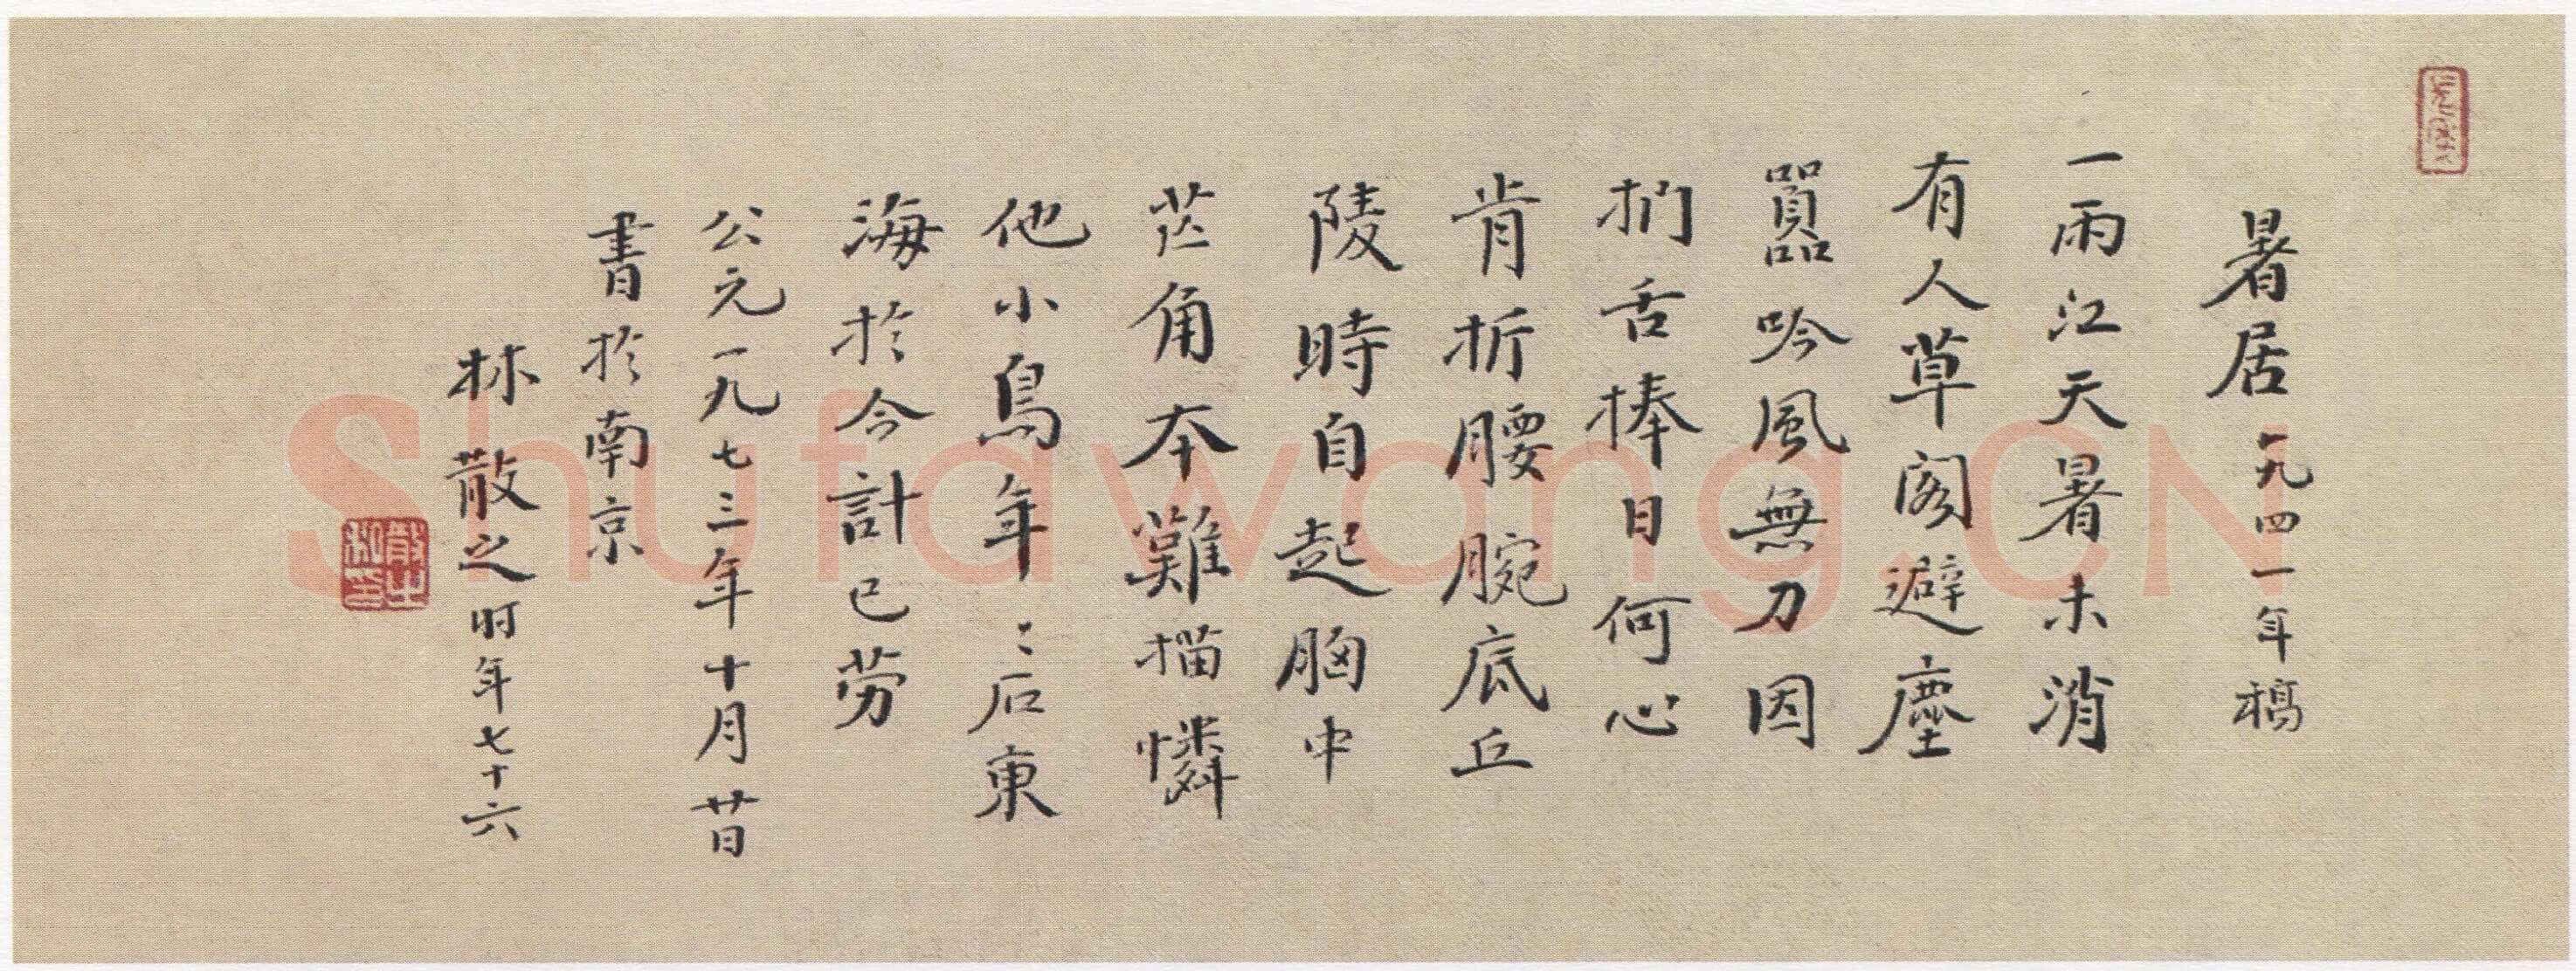 暑居 一九四一年稿
一雨江天暑未消
有人草阁避塵
嚣吟風無刀因
捫舌捧日何心
肯折腰腕底丘
陵時自起胸中
芒角本難描憐
他小鳥年〻石東
海於今計已劳
公元一九七三年十月昔
書於南京
林散之时年七十六
Shufawang.CN